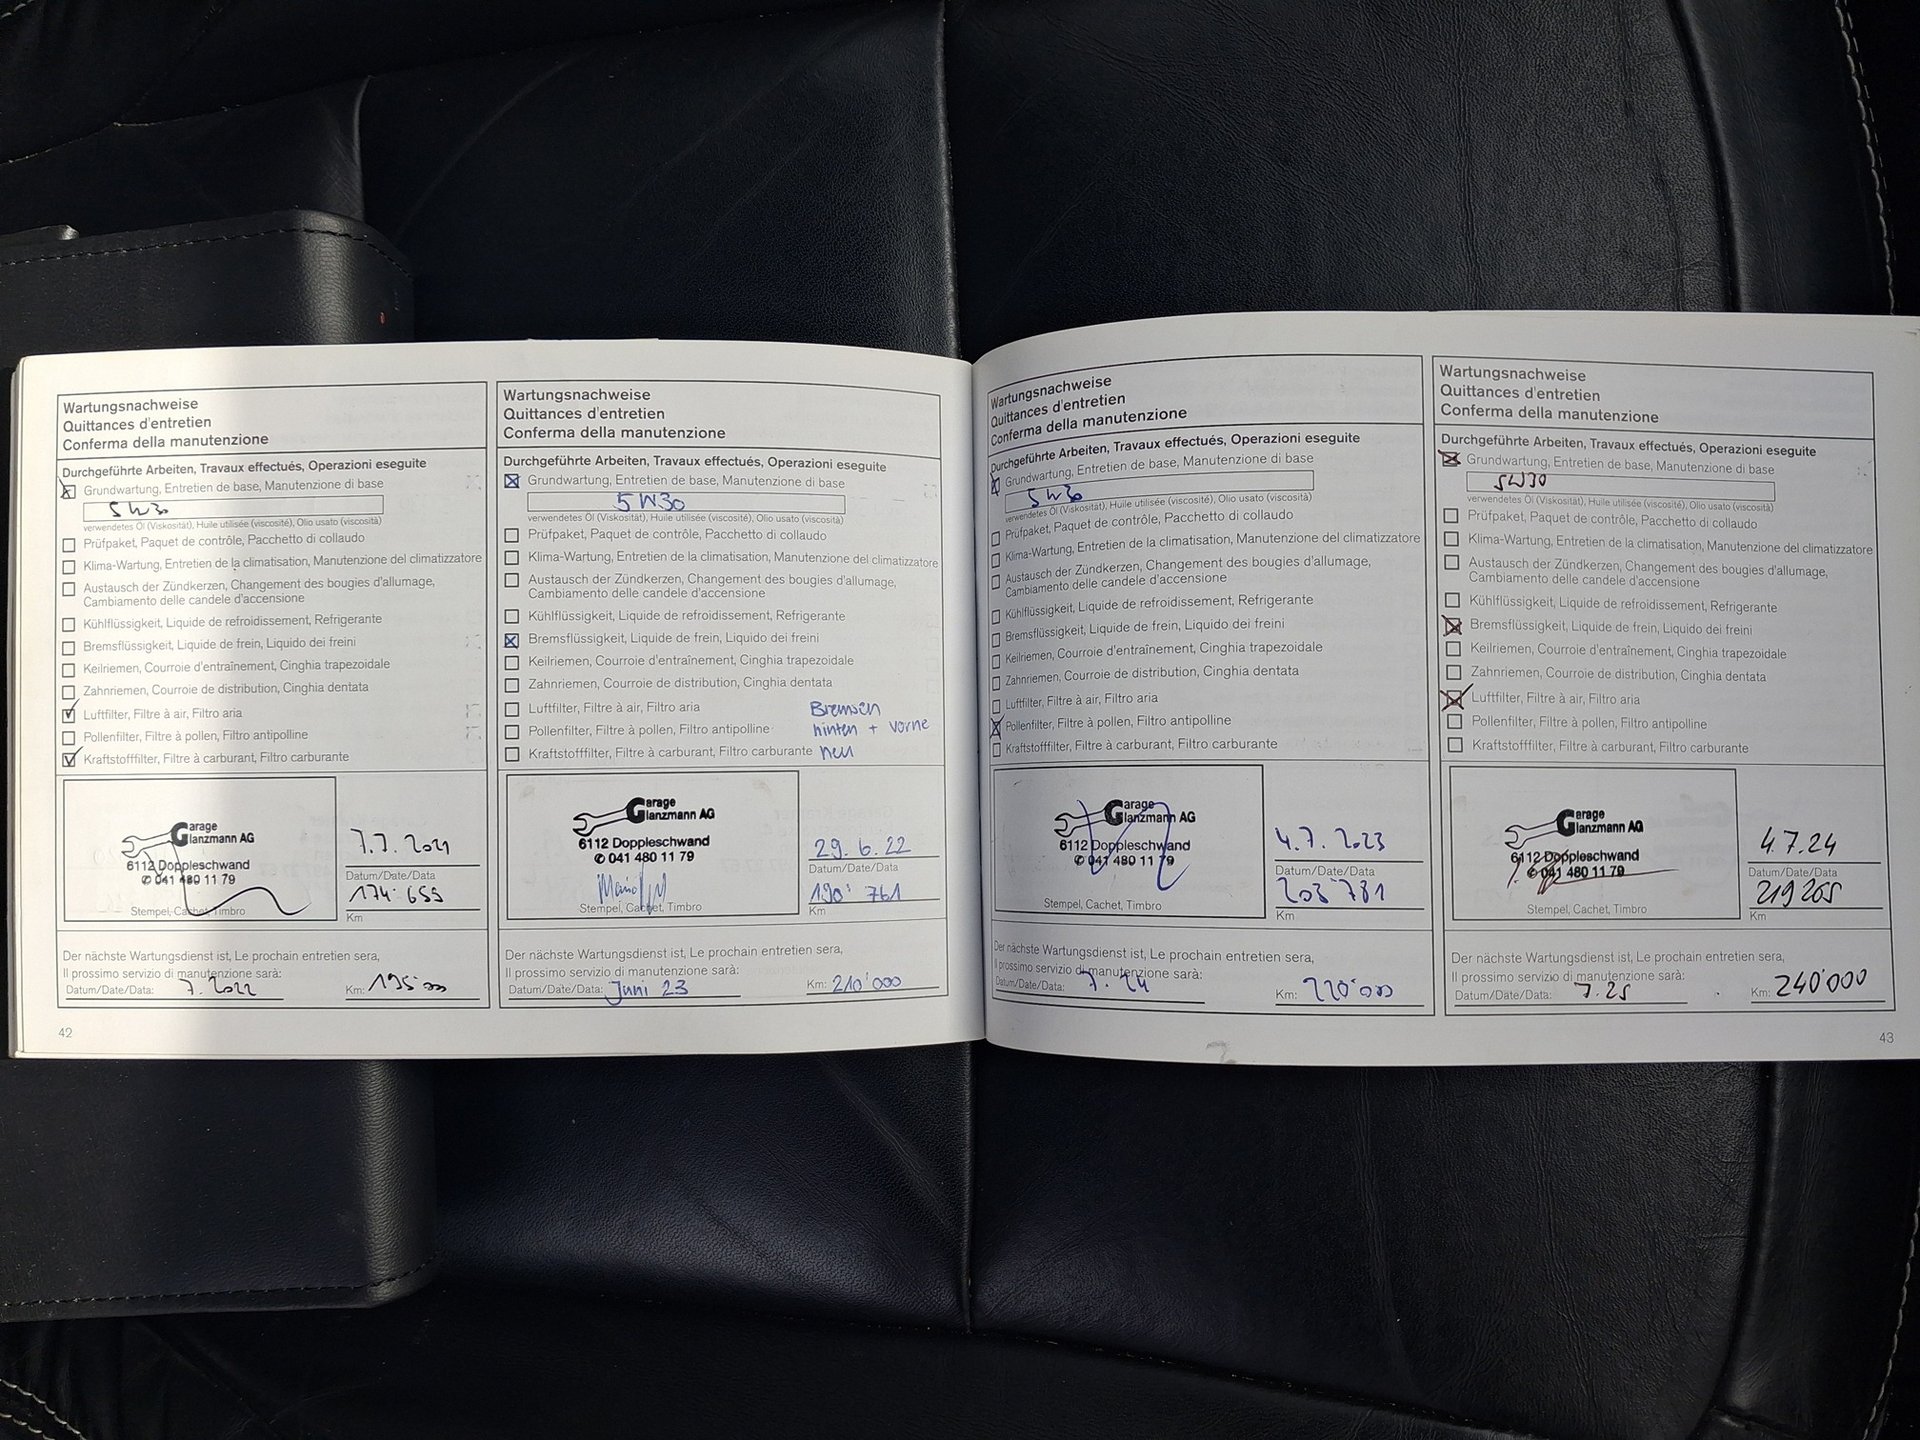 Wartungsnachweise
Quittances d'entretien
Conferma della manutenzione
Durchgeführte Arbeiten, Travaux effectués, Operazioni eseguite
Grundwartung, Entretien de base, Manutenzione di base
5W30
verwendetes Öl (Viskosität), Huile utilisée (viscosité), Olio usato (viscosità)
Prüfpaket, Paquet de contrôle, Pacchetto di collaudo
Klima-Wartung, Entretien de la climatisation, Manutenzione del climatizzatore
Austausch der Zündkerzen, Changement des bougies d'allumage,
Cambiamento delle candele d'accensione
Kühlflüssigkeit, Liquide de refroidissement, Refrigerante
Bremsflüssigkeit, Liquide de frein, Liquido dei freini
Keilriemen, Courroie d'entraînement, Cinghia trapezoidale
Zahnriemen, Courroie de distribution, Cinghia dentata
Luftfilter, Filtre à air, Filtro aria
Pollenfilter, Filtre à pollen, Filtro antipolline
Kraftstofffilter, Filtre à carburant, Filtro carburante
Garage
Glanzmann AG
6112 Doppleschwand
✆ 041 480 11 79
Stempel, Cachet, Timbro
7.7.2021
Datum/Date/Data
174'655
Km
Der nächste Wartungsdienst ist, Le prochain entretien sera,
Il prossimo servizio di manutenzione sarà:
Datum/Date/Data: 7.2022 Km: 195'000
42
Wartungsnachweise
Quittances d'entretien
Conferma della manutenzione
Durchgeführte Arbeiten, Travaux effectués, Operazioni eseguite
Grundwartung, Entretien de base, Manutenzione di base
5W30
verwendetes Öl (Viskosität), Huile utilisée (viscosité), Olio usato (viscosità)
Prüfpaket, Paquet de contrôle, Pacchetto di collaudo
Klima-Wartung, Entretien de la climatisation, Manutenzione del climatizzatore
Austausch der Zündkerzen, Changement des bougies d'allumage,
Cambiamento delle candele d'accensione
Kühlflüssigkeit, Liquide de refroidissement, Refrigerante
Bremsflüssigkeit, Liquide de frein, Liquido dei freini
Keilriemen, Courroie d'entraînement, Cinghia trapezoidale
Zahnriemen, Courroie de distribution, Cinghia dentata
Luftfilter, Filtre à air, Filtro aria Bremsen
Pollenfilter, Filtre à pollen, Filtro antipolline hinten + vorne
Kraftstofffilter, Filtre à carburant, Filtro carburante neu
Garage
Glanzmann AG
6112 Doppleschwand
✆ 041 480 11 79
Stempel, Cachet, Timbro
29.6.22
Datum/Date/Data
190'761
Km
Der nächste Wartungsdienst ist, Le prochain entretien sera,
Il prossimo servizio di manutenzione sarà:
Datum/Date/Data: Juni 23 Km: 210'000
Wartungsnachweise
Quittances d'entretien
Conferma della manutenzione
Durchgeführte Arbeiten, Travaux effectués, Operazioni eseguite
Grundwartung, Entretien de base, Manutenzione di base
5W30
verwendetes Öl (Viskosität), Huile utilisée (viscosité), Olio usato (viscosità)
Prüfpaket, Paquet de contrôle, Pacchetto di collaudo
Klima-Wartung, Entretien de la climatisation, Manutenzione del climatizzatore
Austausch der Zündkerzen, Changement des bougies d'allumage,
Cambiamento delle candele d'accensione
Kühlflüssigkeit, Liquide de refroidissement, Refrigerante
Bremsflüssigkeit, Liquide de frein, Liquido dei freini
Keilriemen, Courroie d'entraînement, Cinghia trapezoidale
Zahnriemen, Courroie de distribution, Cinghia dentata
Luftfilter, Filtre à air, Filtro aria
Pollenfilter, Filtre à pollen, Filtro antipolline
Kraftstofffilter, Filtre à carburant, Filtro carburante
Garage
Glanzmann AG
6112 Doppleschwand
✆ 041 480 11 79
Stempel, Cachet, Timbro
4.7.2023
Datum/Date/Data
203'781
Km
Der nächste Wartungsdienst ist, Le prochain entretien sera,
Il prossimo servizio di manutenzione sarà:
Datum/Date/Data: 7.24 Km: 220'000
Wartungsnachweise
Quittances d'entretien
Conferma della manutenzione
Durchgeführte Arbeiten, Travaux effectués, Operazioni eseguite
Grundwartung, Entretien de base, Manutenzione di base
5W30
verwendetes Öl (Viskosität), Huile utilisée (viscosité), Olio usato (viscosità)
Prüfpaket, Paquet de contrôle, Pacchetto di collaudo
Klima-Wartung, Entretien de la climatisation, Manutenzione del climatizzatore
Austausch der Zündkerzen, Changement des bougies d'allumage,
Cambiamento delle candele d'accensione
Kühlflüssigkeit, Liquide de refroidissement, Refrigerante
Bremsflüssigkeit, Liquide de frein, Liquido dei freini
Keilriemen, Courroie d'entraînement, Cinghia trapezoidale
Zahnriemen, Courroie de distribution, Cinghia dentata
Luftfilter, Filtre à air, Filtro aria
Pollenfilter, Filtre à pollen, Filtro antipolline
Kraftstofffilter, Filtre à carburant, Filtro carburante
Garage
Glanzmann AG
6112 Doppleschwand
✆ 041 480 11 79
Stempel, Cachet, Timbro
4.7.24
Datum/Date/Data
219205
Km
Der nächste Wartungsdienst ist, Le prochain entretien sera,
Il prossimo servizio di manutenzione sarà:
Datum/Date/Data: 7.25 Km: 240'000
43